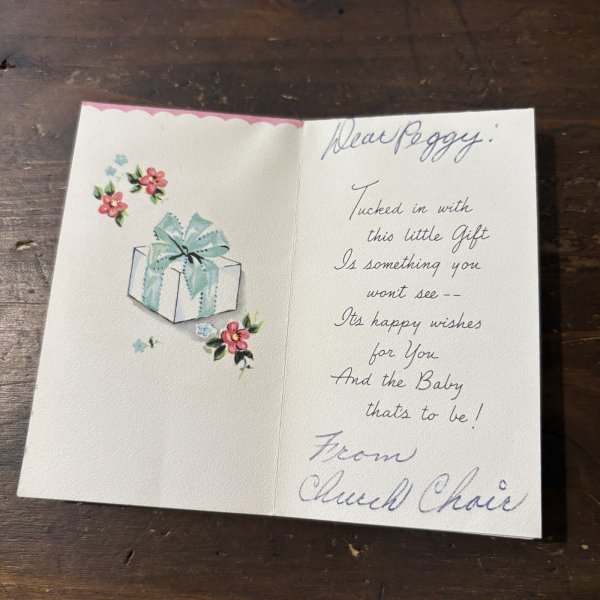 Dear Peggy:
Tucked in with
this little Gift
Is something you
won't see --
It's happy wishes
for You
And the Baby
that's to be!
From
Church Choir